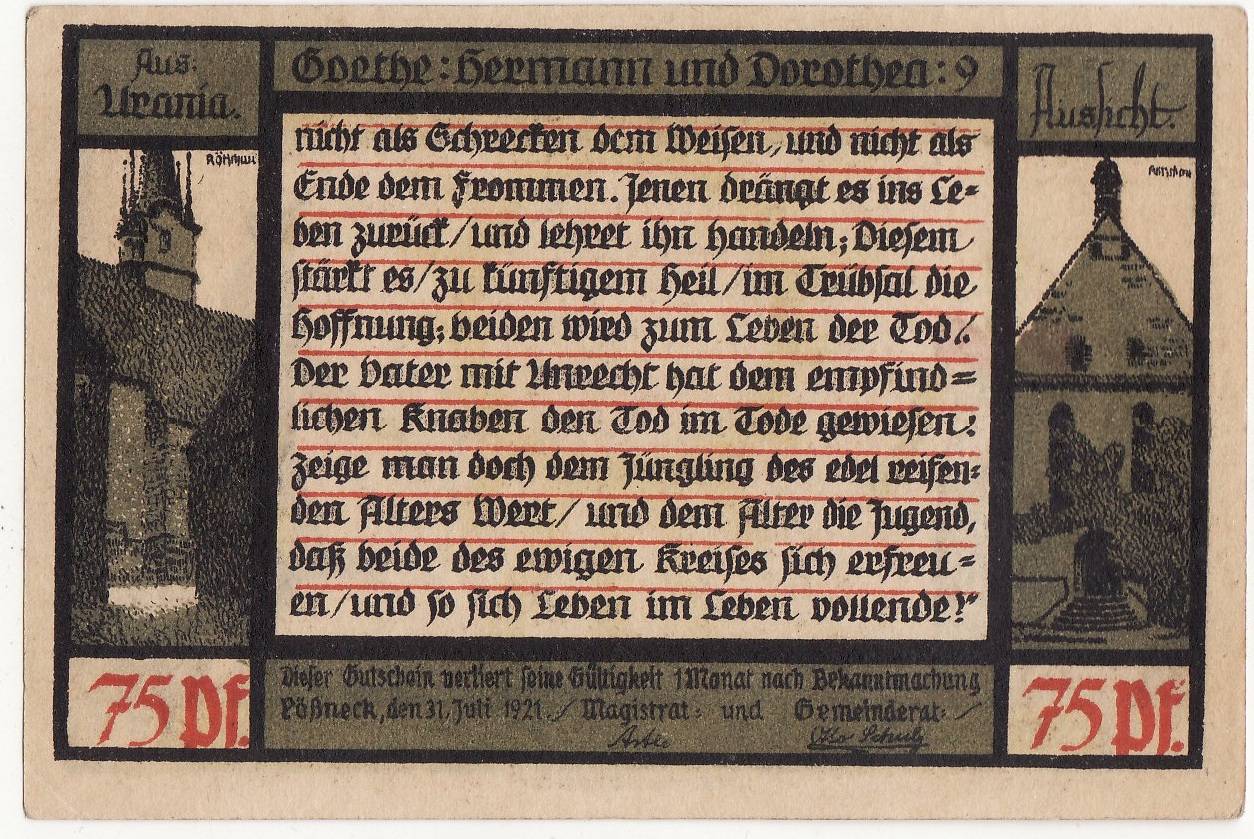 Aus:
Urania.
Goethe: Hermann und Dorothea: 9
Aussicht.
nicht als Schrecken dem Weisen, und nicht als
Ende dem Frommen. Jenen drängt es ins Le=
ben zurück/und lehret ihn handeln; Diesem
stärkt es/zu künftigem Heil/im Trübsal die
Hoffnung; beiden wird zum Leben der Tod/.
Der Vater mit Unrecht hat dem empfind=
lichen Knaben den Tod im Tode gewiesen:
Zeige man doch dem Jüngling des edel reifen=
den Alters Wert/und dem Alter die Jugend,
daß beide des ewigen Kreises sich erfreu=
en/und so sich Leben im Leben vollende!"
75 Pf.
Dieser Gutschein verliert seine Gültigkeit 1 Monat nach Bekanntmachung
Pößneck, den 31. Juli 1921./ Magistrat= und Gemeinderat=/
75 Pf.